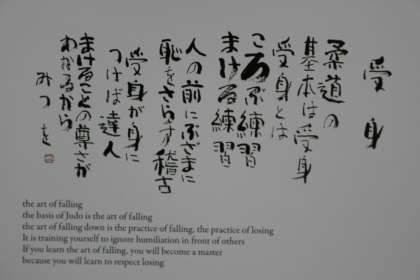 受身
柔道の
基本は受身
受身とは
ころぶ練習
まける練習
人の前にぶざまに
恥をさらす稽古
受身が身に
つけば達人
まけることの尊さが
わかるから
みつを
the art of falling
the basis of Judo is the art of falling
the art of falling down is the practice of falling, the practice of losing
It is training yourself to ignore humiliation in front of others
If you learn the art of falling, you will become a master
because you will learn to respect losing